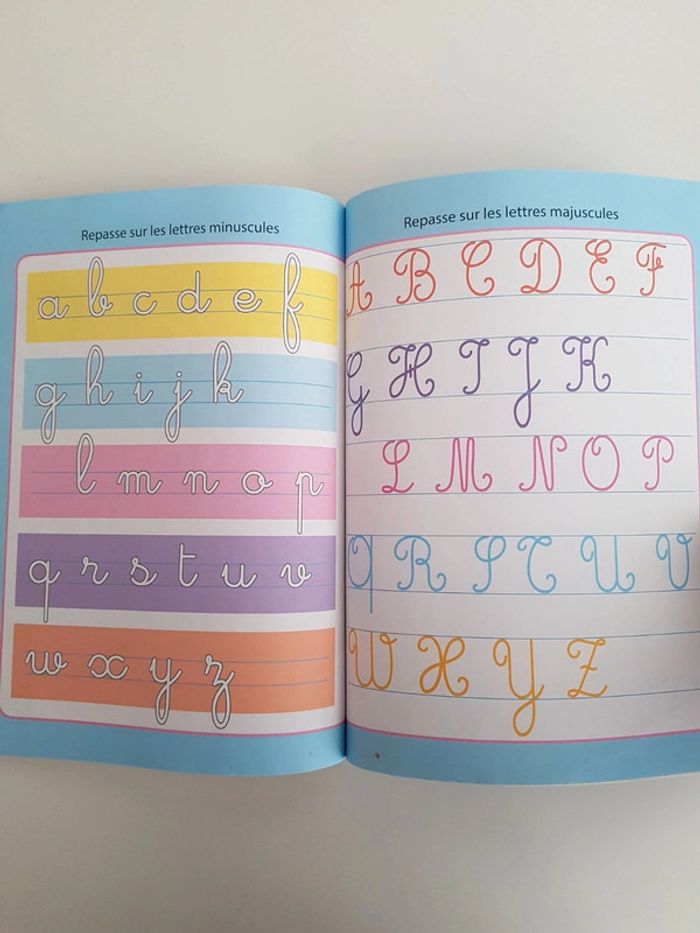 Repasse sur les lettres minuscules
a b c d e f
g h i j k
l m n o p
q r s t u v
w x y z
Repasse sur les lettres majuscules
A B C D E F
G H I J K
L M N O P
Q R S T U V
W X Y Z